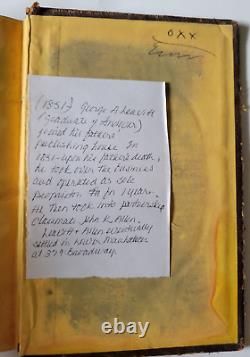 OXX
(1851) George A Leavitt
(graduate of Andover)
joined his father's
publishing house. In
1851 upon his father's death,
he took over the business
and operated as sole
proprietor for 1 year.
He then took into partnership
classmate John K Allen.
Leavitt & Allen eventually
settled in lower Manhattan
at 379 Broadway.